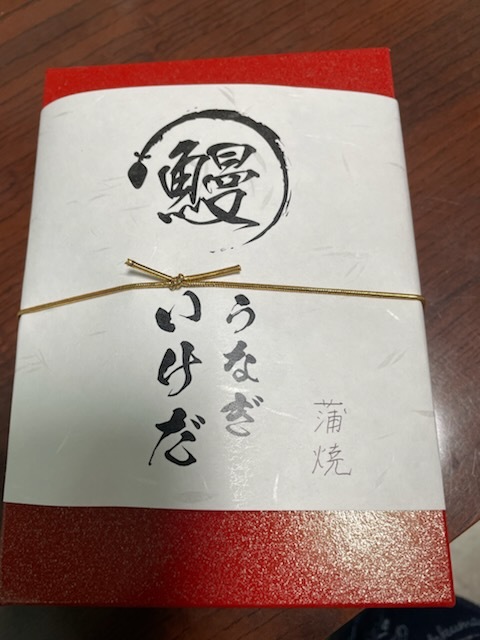 鰻
うなぎ
いけだ
蒲焼